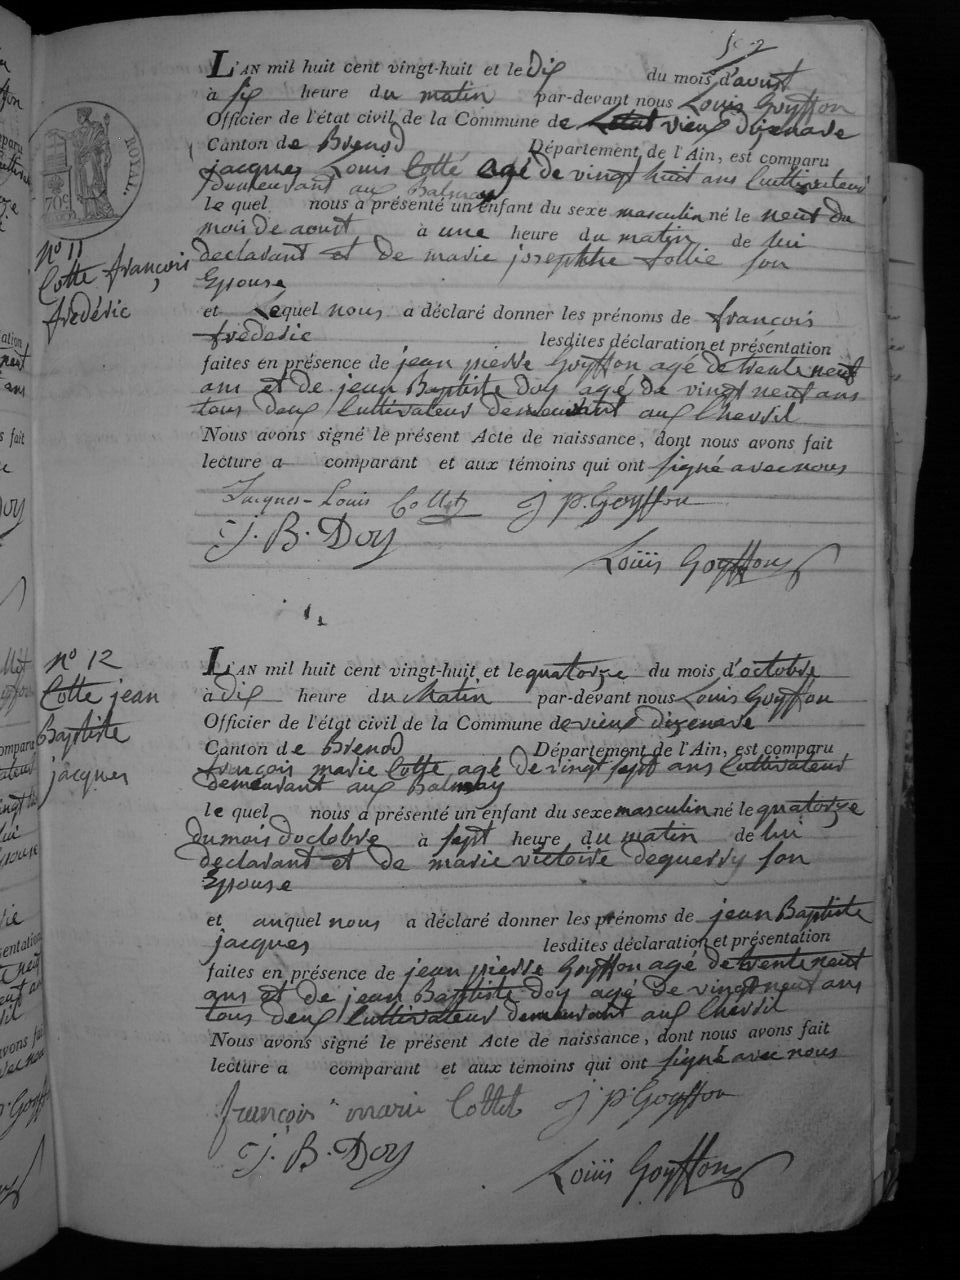 L'AN mil huit cent vingt-huit et le dix du mois d'aoust
à six heure du matin par-devant nous Louis Goyffon
Officier de l'état civil de la Commune de vieux dizenave
Canton de Brenod Département de l'Ain, est comparu
jacques Louis Cotté agé de vingt huit ans Cultivateur
demeurant aux Balmay
le quel nous a présenté un enfant du sexe masculin né le neuf du
mois de aoust à une heure du matin de lui
declarant et de marie josephthe follie son
Epouse
et Lequel nous a déclaré donner les prénoms de françois
frederic lesdites déclaration et présentation
faites en présence de jean pierre Goyffon agé de trente neuf
ans et de jean Baptiste Doy agé de vingt neuf ans
tous deux Cultivateur demeurant aux Chevril
Nous avons signé le présent Acte de naissance, dont nous avons fait
lecture a comparant et aux témoins qui ont signé avec nous
Jacques-Louis Collet j p. Goyffon
J. B. Doy
Louis Goyffon
ROYAL.
70c
nº 11
Cotte françois
fredéric
nº 12
Cotte jean
Baptiste
jacques
L'AN mil huit cent vingt-huit et le quatorze du mois d'octobre
à dix heure du Matin par-devant nous Louis Goyffon
Officier de l'état civil de la Commune de vieux dizenave
Canton de Brenod Département de l'Ain, est comparu
françois marie Cotte agé de vingt sept ans Cultivateur
demeurant aux Balmay
le quel nous a présenté un enfant du sexe masculin né le quatorze
du mois d'octobre à sept heure du matin de lui
declarant et de marie victoire dequerry son
Epouse
et auquel nous a déclaré donner les prénoms de jean Baptiste
jacques lesdites déclaration et présentation
faites en présence de jean pierre Goyffon agé de trente neuf
ans et de jean Baptiste Doy agé de vingt neuf ans
tous deux Cultivateur demeurant aux Chevril
Nous avons signé le présent Acte de naissance, dont nous avons fait
lecture a comparant et aux témoins qui ont signé avec nous
françois marie Collet j p Goyffon
J. B. Doy
Louis Goyffon